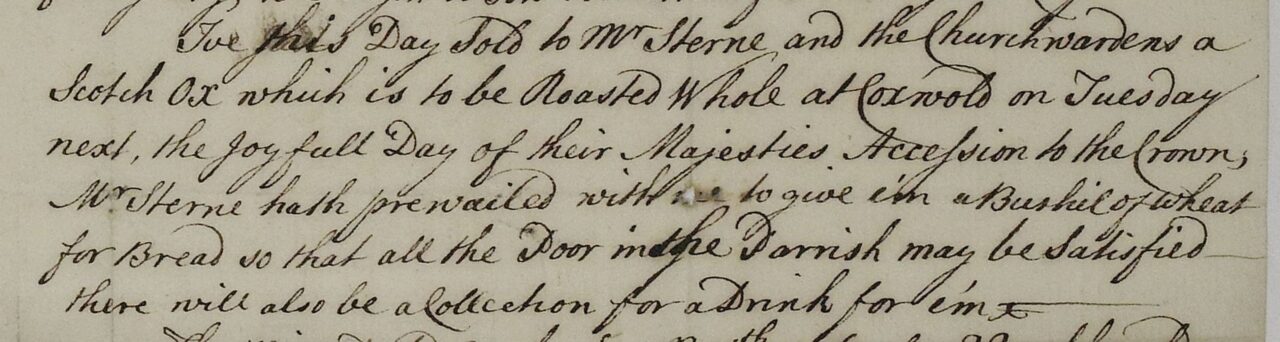 I've this Day Sold to Mr Sterne and the Churchwardens a
Scotch Ox which is to be Roasted Whole at Coxwold on Tuesday
next, the Joyfull Day of their Majesties Accession to the Crown;
Mr Sterne hath prevailed with me to give e'm a Bushil of Wheat
for Bread so that all the Poor in the Parrish may be Satisfied
there will also be a Collection for a Drink for e'm